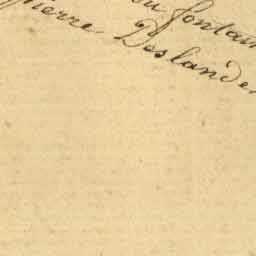 du fontain
Pierre Deslandes